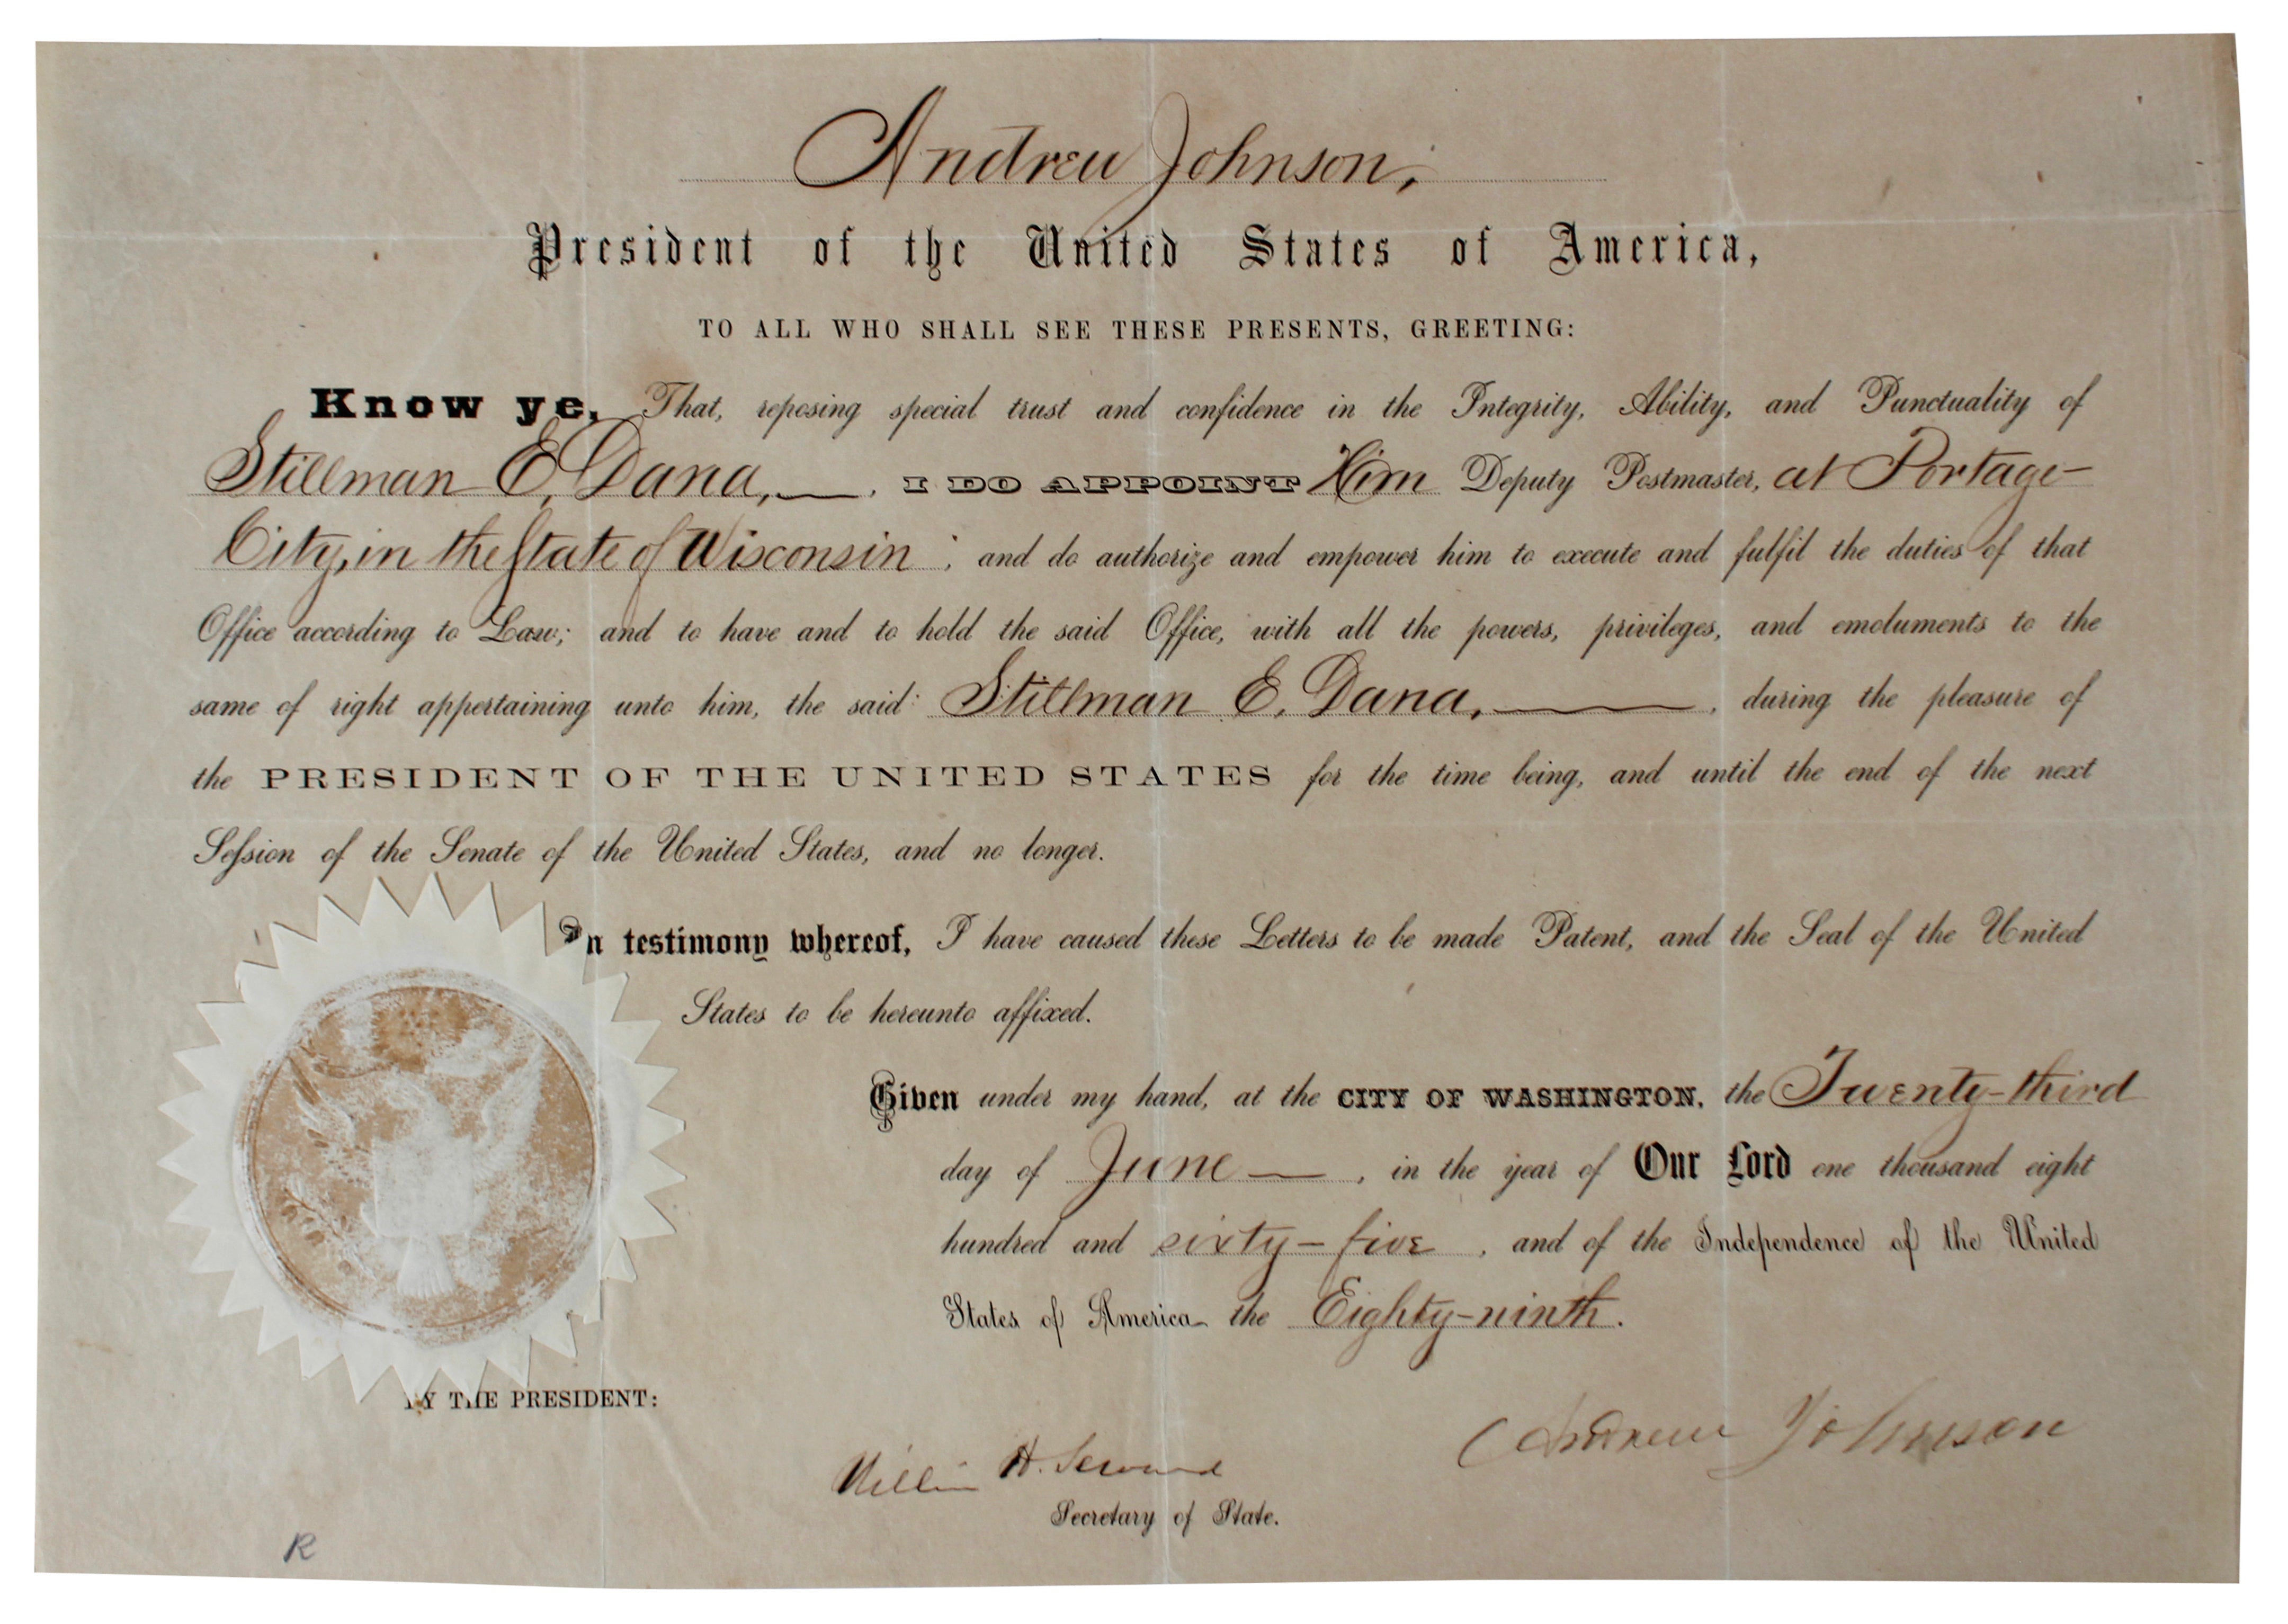 Andrew Johnson,
President of the United States of America,
TO ALL WHO SHALL SEE THESE PRESENTS, GREETING:
Know ye, That, reposing special trust and confidence in the Integrity, Ability, and Punctuality of
Stillman E. Dana, —, I DO APPOINT Him Deputy Postmaster, at Portage
City, in the State of Wisconsin ; and do authorize and empower him to execute and fulfil the duties of that
Office according to Law; and to have and to hold the said Office, with all the powers, privileges, and emoluments to the
same of right appertaining unto him, the said Stillman E. Dana, —, during the pleasure of
the PRESIDENT OF THE UNITED STATES for the time being, and until the end of the next
Seſsion of the Senate of the United States, and no longer.
In testimony whereof, I have caused these Letters to be made Patent, and the Seal of the United
States to be hereunto affixed.
Given under my hand, at the CITY OF WASHINGTON, the Twenty-third
day of June —, in the year of Our Lord one thousand eight
hundred and sixty-five, and of the Independence of the United
States of America the Eighty-ninth.
BY THE PRESIDENT:
Andrew Johnson
William H. Seward
Secretary of State.
R